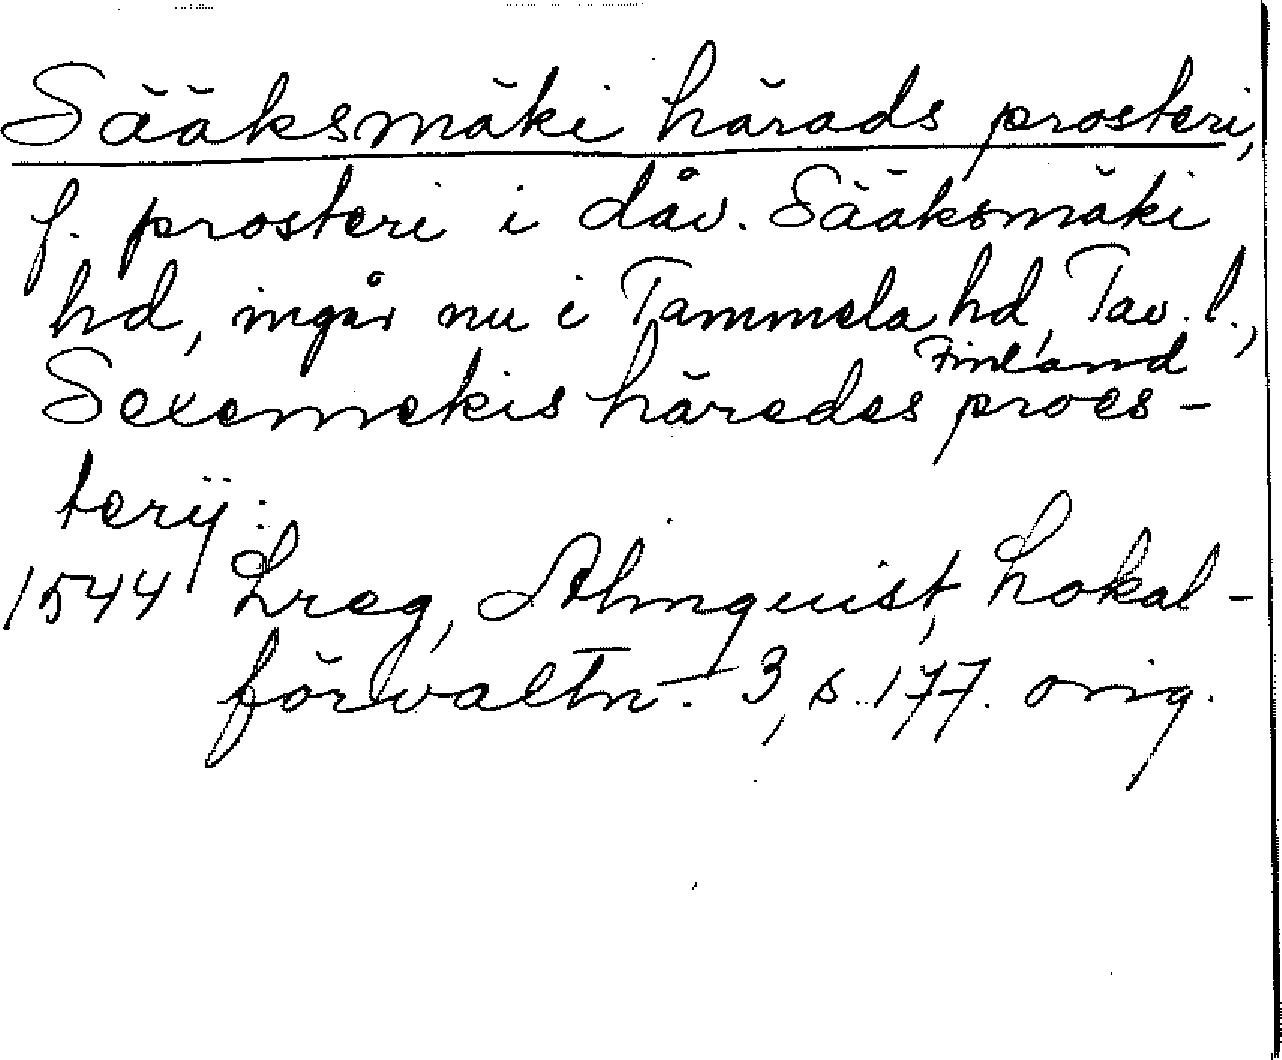 Sääksmäki härads prosteri,
f. prosteri i dåv. Sääksmäki
hd, ingår nu i Tammela hd, Tav. l.,
Finland
Sexemekis häredes proes-
terÿ:
1544 Lreg, Almquist, Lokal-
förvaltn. 3, s. 177. orig.